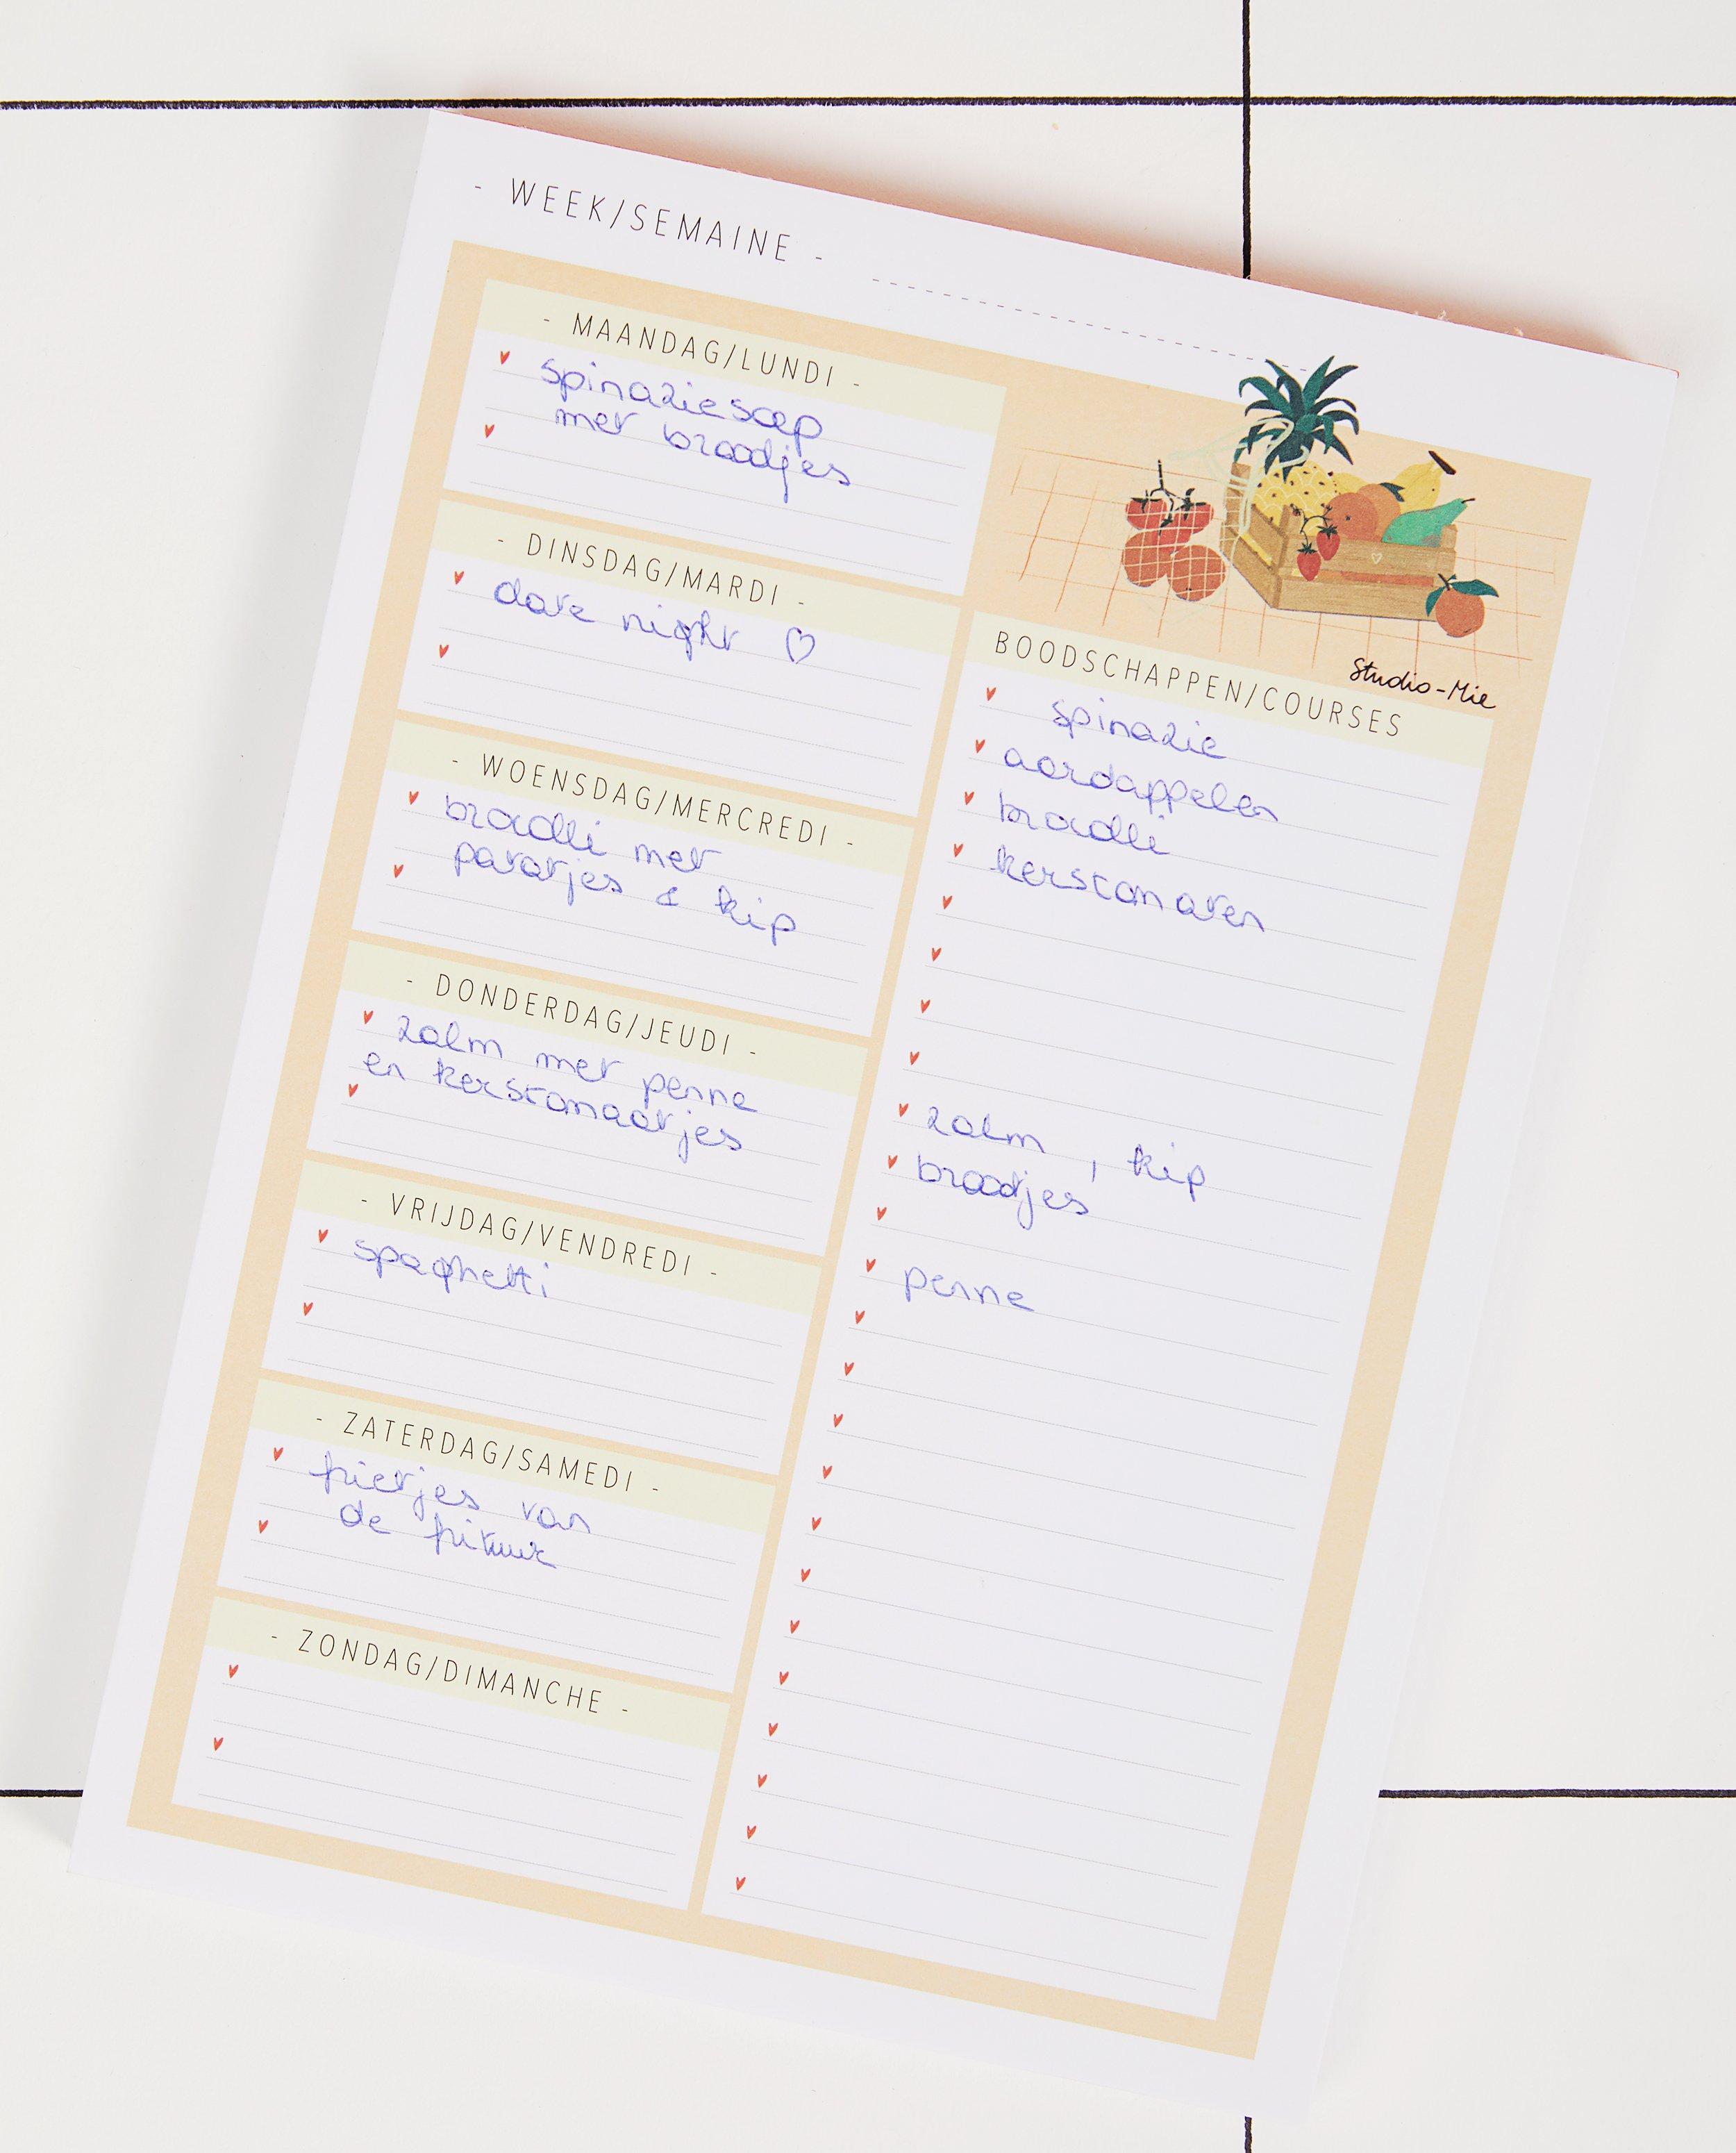 - WEEK/SEMAINE -
- MAANDAG/LUNDI -
spinaziesoep
met broodjes
- DINSDAG/MARDI -
date night ♡
- WOENSDAG/MERCREDI -
brocolli met
patatjes & kip
- DONDERDAG/JEUDI -
zalm met penne
en kerstomaatjes
- VRIJDAG/VENDREDI -
spaghetti
- ZATERDAG/SAMEDI -
frietjes van
de frituur
- ZONDAG/DIMANCHE -
Studio-Mie
BOODSCHAPPEN/COURSES
spinazie
aardappelen
brocolli
kerstomaten
zalm , kip
broodjes
penne